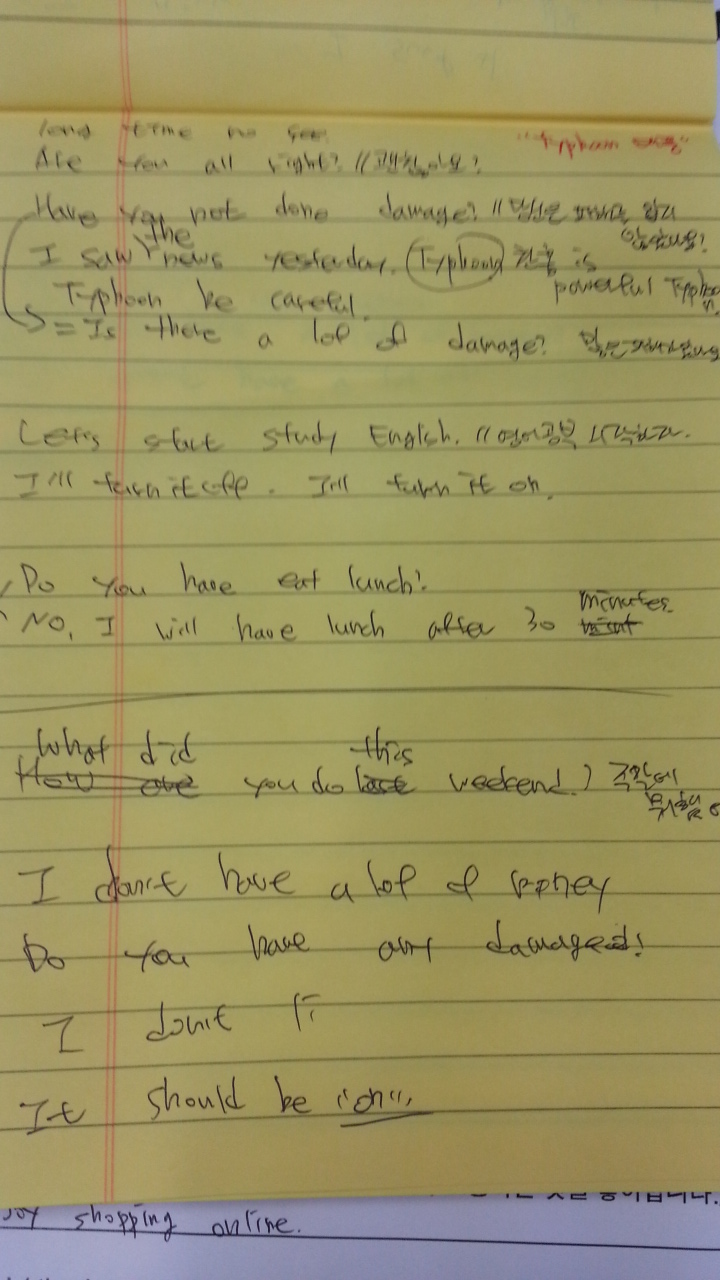 long time no see.
"Typhoon
Are you all right? // 괜찮아요?
Have you not done damage? //
않았나요?
I saw the news yesterday. (Typhoon) is
powerful Typhoon.
Typhoon be careful.
= Is there a lof of damage?
Let's start study English. // 영어공부 시작하다.
I'll turn it off. I'll turn it on.
Do you have eat lunch?
No, I will have lunch after 30 minutes
What did this
How are you do last weekend? 주말에
뭐했
I don't have a lof of money
Do you have any damaged?
I don't li
It should be "on"
shopping online.